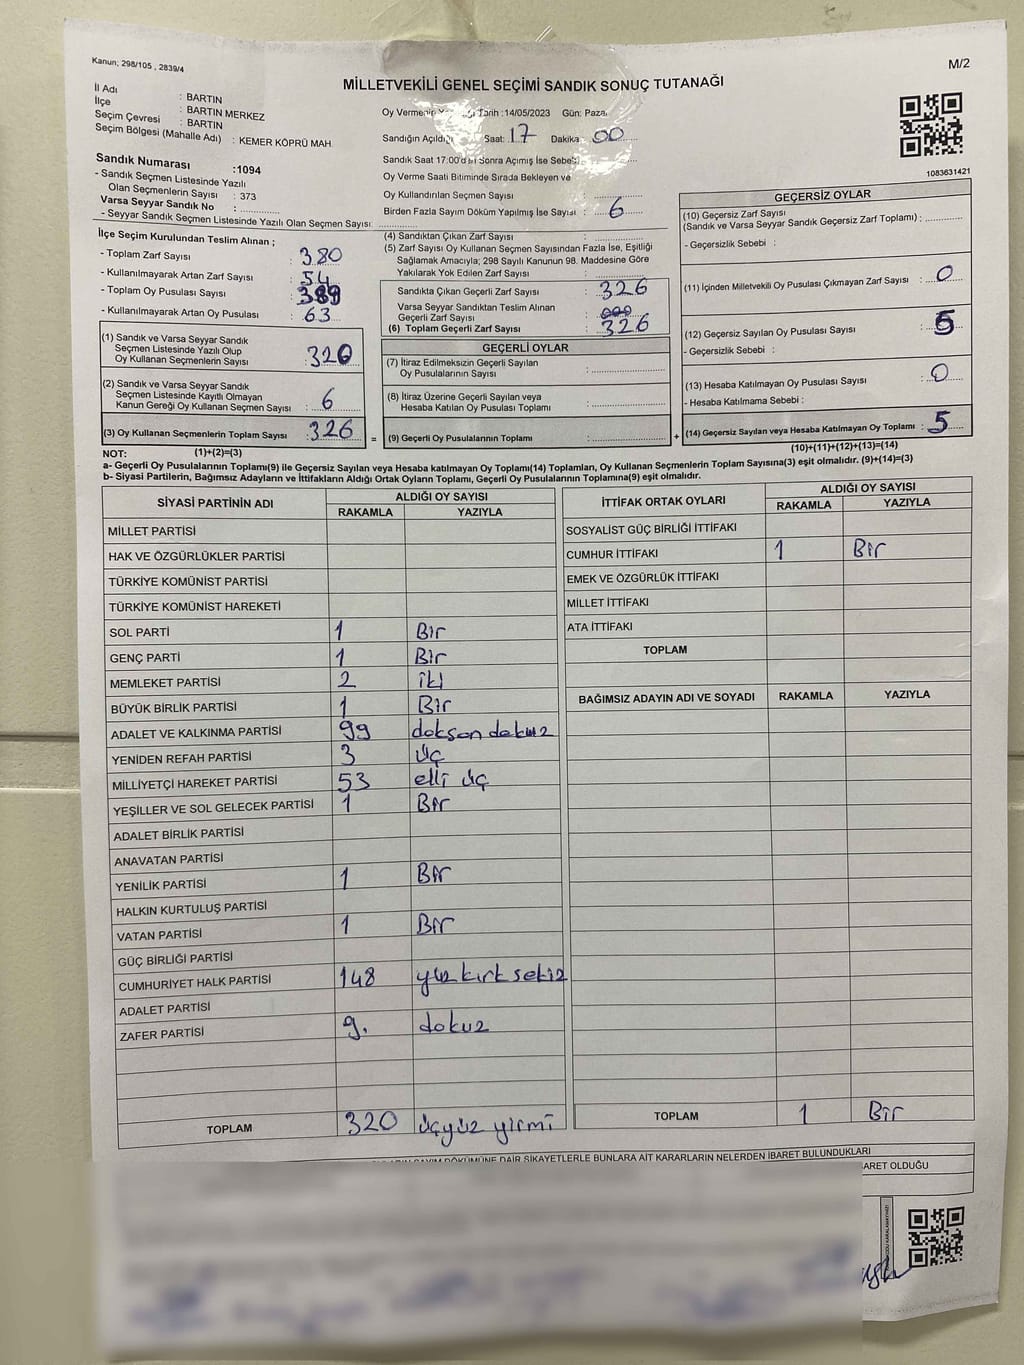 Kanun; 298/105 , 2839/4
M/2
MİLLETVEKİLİ GENEL SEÇİMİ SANDIK SONUÇ TUTANAĞI
İl Adı : BARTIN
İlçe : BARTIN MERKEZ
Seçim Çevresi : BARTIN
Seçim Bölgesi (Mahalle Adı) : KEMER KÖPRÜ MAH.
Sandık Numarası :1094
- Sandık Seçmen Listesinde Yazılı
Olan Seçmenlerin Sayısı : 373
Varsa Seyyar Sandık No :
- Seyyar Sandık Seçmen Listesinde Yazılı Olan Seçmen Sayısı:
Oy Vermenin Tarih :14/05/2023 Gün: Pazar
Sandığın Açıldığı Saat: 17 Dakika: 00
Sandık Saat 17:00'dan Sonra Açımış İse Sebebi
Oy Verme Saati Bitiminde Sırada Bekleyen ve
Oy Kullandırılan Seçmen Sayısı :
Birden Fazla Sayım Döküm Yapılmış İse Sayısı : 6
1083631421
İlçe Seçim Kurulundan Teslim Alınan ;
- Toplam Zarf Sayısı : 380
- Kullanılmayarak Artan Zarf Sayısı : 54
- Toplam Oy Pusulası Sayısı : 389
- Kullanılmayarak Artan Oy Pusulası : 63
(1) Sandık ve Varsa Seyyar Sandık
Seçmen Listesinde Yazılı Olup
Oy Kullanan Seçmenlerin Sayısı : 320
(2) Sandık ve Varsa Seyyar Sandık
Seçmen Listesinde Kayıtlı Olmayan
Kanun Gereği Oy Kullanan Seçmen Sayısı : 6
(3) Oy Kullanan Seçmenlerin Toplam Sayısı : 326
(4) Sandıktan Çıkan Zarf Sayısı :
(5) Zarf Sayısı Oy Kullanan Seçmen Sayısından Fazla İse, Eşitliği
Sağlamak Amacıyla; 298 Sayılı Kanunun 98. Maddesine Göre
Yakılarak Yok Edilen Zarf Sayısı :
Sandıkta Çıkan Geçerli Zarf Sayısı : 326
Varsa Seyyar Sandıktan Teslim Alınan
Geçerli Zarf Sayısı :
(6) Toplam Geçerli Zarf Sayısı : 326
GEÇERLİ OYLAR
(7) İtiraz Edilmeksizin Geçerli Sayılan
Oy Pusulalarının Sayısı :
(8) İtiraz Üzerine Geçerli Sayılan veya
Hesaba Katılan Oy Pusulası Toplamı :
= (9) Geçerli Oy Pusulalarının Toplamı :
GEÇERSİZ OYLAR
(10) Geçersiz Zarf Sayısı
(Sandık ve Varsa Seyyar Sandık Geçersiz Zarf Toplamı) :
- Geçersizlik Sebebi :
(11) İçinden Milletvekili Oy Pusulası Çıkmayan Zarf Sayısı : 0
(12) Geçersiz Sayılan Oy Pusulası Sayısı : 5
- Geçersizlik Sebebi :
(13) Hesaba Katılmayan Oy Pusulası Sayısı : 0
- Hesaba Katılmama Sebebi :
+ (14) Geçersiz Sayılan veya Hesaba Katılmayan Oy Toplamı : 5
NOT: (1)+(2)=(3)
(10)+(11)+(12)+(13)=(14)
a- Geçerli Oy Pusulalarının Toplamı(9) ile Geçersiz Sayılan veya Hesaba katılmayan Oy Toplamı(14) Toplamları, Oy Kullanan Seçmenlerin Toplam Sayısına(3) eşit olmalıdır. (9)+(14)=(3)
b- Siyasi Partilerin, Bağımsız Adayların ve İttifakların Aldığı Ortak Oyların Toplamı, Geçerli Oy Pusulalarının Toplamına(9) eşit olmalıdır.
SİYASİ PARTİNİN ADI ALDIĞI OY SAYISI
RAKAMLA YAZIYLA
MİLLET PARTİSİ
HAK VE ÖZGÜRLÜKLER PARTİSİ
TÜRKİYE KOMÜNİST PARTİSİ
TÜRKİYE KOMÜNİST HAREKETİ
SOL PARTİ 1 Bir
GENÇ PARTİ 1 Bir
MEMLEKET PARTİSİ 2 iki
BÜYÜK BİRLİK PARTİSİ 1 Bir
ADALET VE KALKINMA PARTİSİ 99 doksan dokuz
YENİDEN REFAH PARTİSİ 3 üç
MİLLİYETÇİ HAREKET PARTİSİ 53 elli üç
YEŞİLLER VE SOL GELECEK PARTİSİ 1 Bir
ADALET BİRLİK PARTİSİ
ANAVATAN PARTİSİ
YENİLİK PARTİSİ 1 Bir
HALKIN KURTULUŞ PARTİSİ
VATAN PARTİSİ 1 Bir
GÜÇ BİRLİĞİ PARTİSİ
CUMHURİYET HALK PARTİSİ 148 yüz kırk sekiz
ADALET PARTİSİ
ZAFER PARTİSİ 9. dokuz
TOPLAM 320 üçyüz yirmi
İTTİFAK ORTAK OYLARI ALDIĞI OY SAYISI
RAKAMLA YAZIYLA
SOSYALİST GÜÇ BİRLİĞİ İTTİFAKI
CUMHUR İTTİFAKI 1 Bir
EMEK VE ÖZGÜRLÜK İTTİFAKI
MİLLET İTTİFAKI
ATA İTTİFAKI
TOPLAM
BAĞIMSIZ ADAYIN ADI VE SOYADI RAKAMLA YAZIYLA
TOPLAM 1 Bir
DÖKÜMÜNE DAİR ŞİKAYETLERLE BUNLARA AİT KARARLARIN NELERDEN İBARET BULUNDUKLARI
BARET OLDUĞU